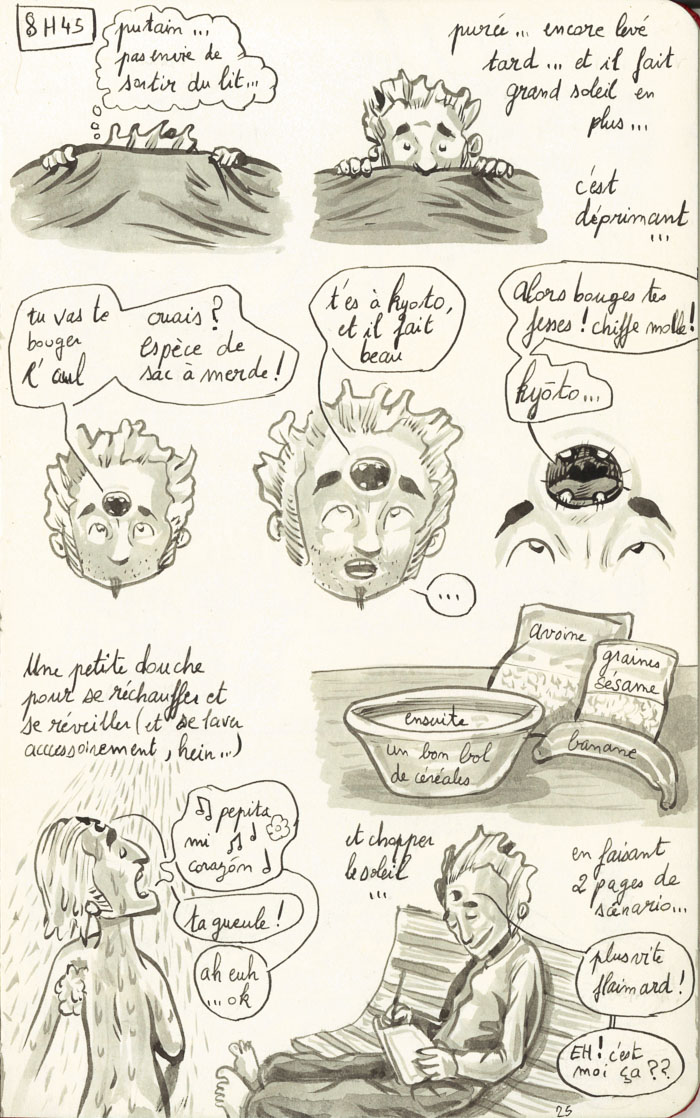 8H45
putain ...
pas envie de
sortir du lit...
purée... encore levé
tard... et il fait
grand soleil en
plus...
c'est
déprimant
...
tu vas te
bouger
l' cul
ouais ?
espèce de
sac à merde !
t'es à kyoto,
et il fait
beau
...
Alors bouges tes
fesses ! chiffe molle !
kyōto...
Une petite douche
pour se réchauffer et
se réveiller (et se laver
accessoirement, hein...)
avoine
graines
sésame
banane
ensuite
un bon bol
de céréales
♫ pepita
mi ♫ ♩
corazón ♩
ta gueule !
ah euh
...ok
et chopper
le soleil
...
en faisant
2 pages de
scénario...
plus vite
flaimard !
EH ! c'est
moi ça ??
25